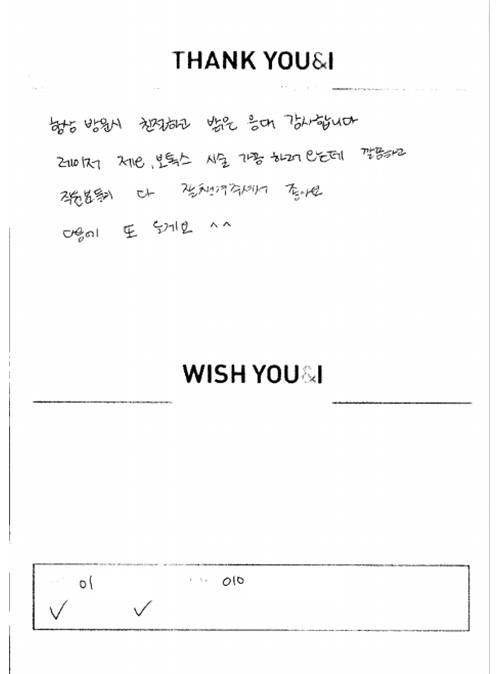 THANK YOU&I
항상 방문시 친절하고 밝은 응대 감사합니다
레이저 제모, 보톡스 시술 가끔 하러 오는데 깔끔하고
직원분들이 다 잘챙겨주셔서 좋아요
다음에 또 올게요 ^^
WISH YOU&I
이 010